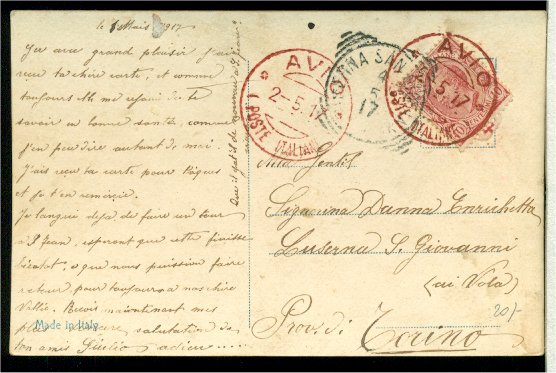 le 1 Mais 1917
J'ai avec grand plaisir
reçu ta chère carte, et comme
toujours
savoir en bonne santé, comme
j'en peu dire autant de moi.
J'ai reçu ta carte pour Pâques
et je t'en remercie.
Je languis dejà de faire un tour
à S. Jean, esperant que cette finisse
bientot, e que nous puission faire
retour pour toujours a nos chère
Vallée. maintenant mes
plus salutation de
ton amis Giulio adieu
Made in Italy
AVIO
2-5.17
POSTE ITALIANE
SAN
5
17
AVIO
5.17
POSTE ITALIANE
Alla Gentil
Signorina Danna Enrichetta
Luserna S. Giovanni
(ai Vola)
Prov. di Torino
20/-